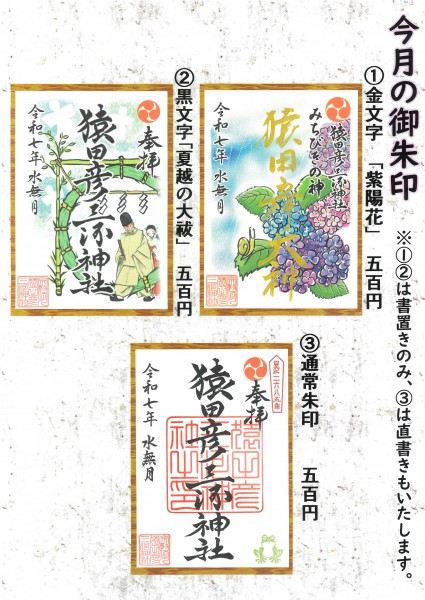 今月の御朱印
※①②は書置きのみ、③は直書きもいたします。
①金文字 「紫陽花」 五百円
猿田彦三河神社
みちびきの神
猿田彦大神
令和七年 水無月
②黒文字「夏越の大祓」 五百円
奉拝
猿田彦三河神社
令和七年 水無月
③通常朱印 五百円
皇紀二六八五年
奉拝
猿田彦三河神社
令和七年 水無月